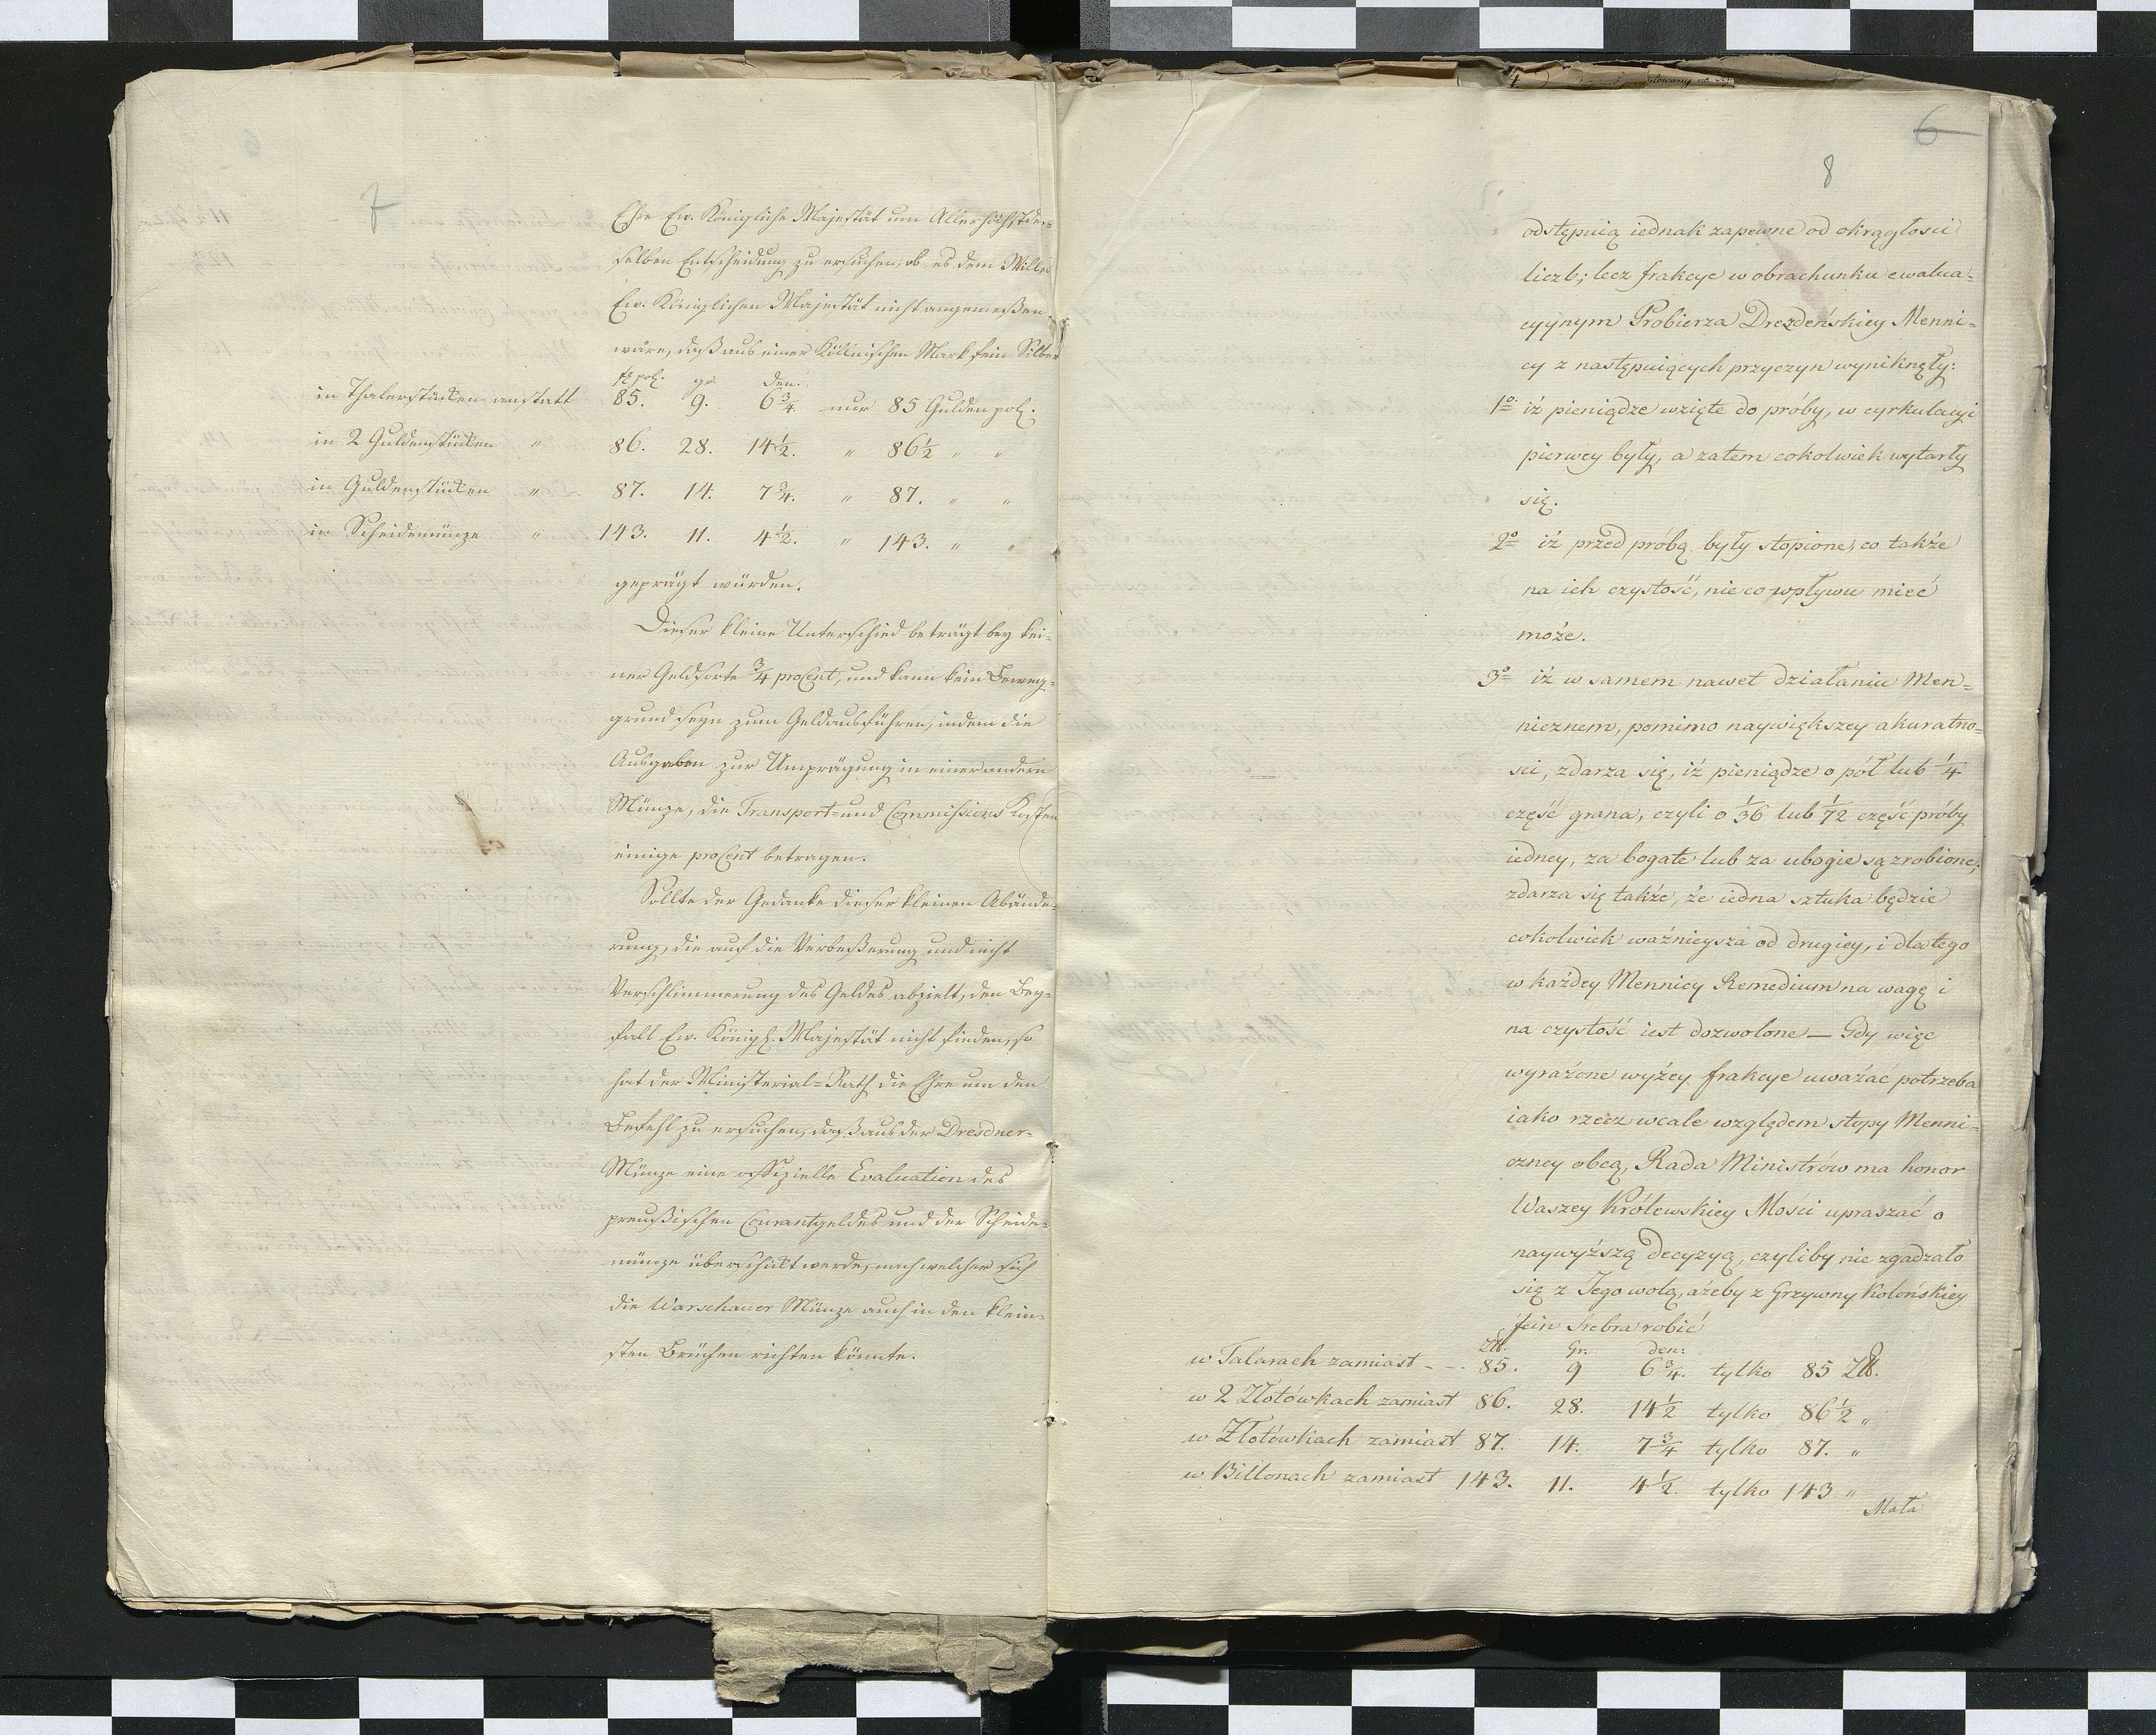 7
Ehre Ew. Königliche Majestät um Allerhöchstder=
selben Entscheidung zu ersuchen, ob es dem Willen
Ew: Königlichen Majestät nicht angemeßen
wäre, daß aus einer Köllnischen Mark fein Silber
fl pol. gr. den.
in Thalerstücken anstatt 85. 9. 6 3/4. nur 85 Gulden pol.
in 2 Guldenstücken " 86. 28. 14 1/2. " 86 1/2 " "
in Guldenstücken " 87. 14. 7 3/4. " 87. " "
in Scheidemünze " 143. 11. 4 1/2. " 143. " "
geprägt würden.
Dieser kleine Unterschied beträgt bey kei=
ner Geldsorte 3/4 proCent, und kann kein Beweg=
grund seyn zum Geldausführen, indem die
Ausgaben zur Umprägung in einer andern
Münze, die Transport= und Commissions Kosten
einige proCent betragen.
Sollte der Gedanke dieser kleinen Abände=
rung, die auf die Verbeßerung und nicht
Verschlimmerung des Geldes abzielt, den Bey=
fall Ew. Königl. Majestät nicht finden, so
hat der Ministerial=Rath die Ehre um den
Befehl zu ersuchen, daß aus der Dresdner=
Münze eine offizielle Evaluation des
preußischen Courantgeldes und der Scheide=
münze überschickt werde, nach welcher sich
die Warschauer Münze auch in den klein=
sten Brüchen richten könnte.
6
8
odstępuią iednak zapewne od okrągłosci
liczb; lecz frakcye w obrachunku ewalua=
cyynym Probierza Drezdeńskiey Menni=
cy z następuiących przyczyn wyniknęły:
1o iż pieniądze wzięte do próby, w cyrkulacyi
pierwey były, a zatem cokolwiek wytarły
się.
2o iż przed próbą były stopione, co także
na ich czystość, nieco wpływu mieć
może.
3o iż w samem nawet działaniu Men=
nicznem, pomimo naywiększey akuratno=
sci, zdarza się, iż pieniądze o pół lub 1/4
część grana, czyli o 1/36 lub 1/72 część próby
iedney, za bogate lub za ubogie są zrobione;
zdarza się także, że iedna sztuka będzie
cokolwiek ważnieysza od drugiey, i dlatego
w każdey Mennicy Remedium na wagę i
na czystość iest dozwolone — Gdy więc
wyrażone wyżey frakcye uważać potrzeba
iako rzecz wcale względem stopy Menni=
czney obcą, Rada Ministrów ma honor
Waszey Królewskiey Mości upraszać o
naywyższą Decyzyą, czyliby nie zgadzało
się z Jego wolą, ażeby z Grzywny Kolońskiey
fein Srebra robić
Zł. Gr. den:
w Talarach zamiast - - - 85. 9 6 3/4. tylko 85 Zł.
w 2 Złotówkach zamiast 86. 28. 14 1/2 tylko 86 1/2 "
w Złotówkach zamiast 87. 14. 7 3/4 tylko 87. "
w Billonach zamiast 143. 11. 4 1/2. tylko 143 "
Mała